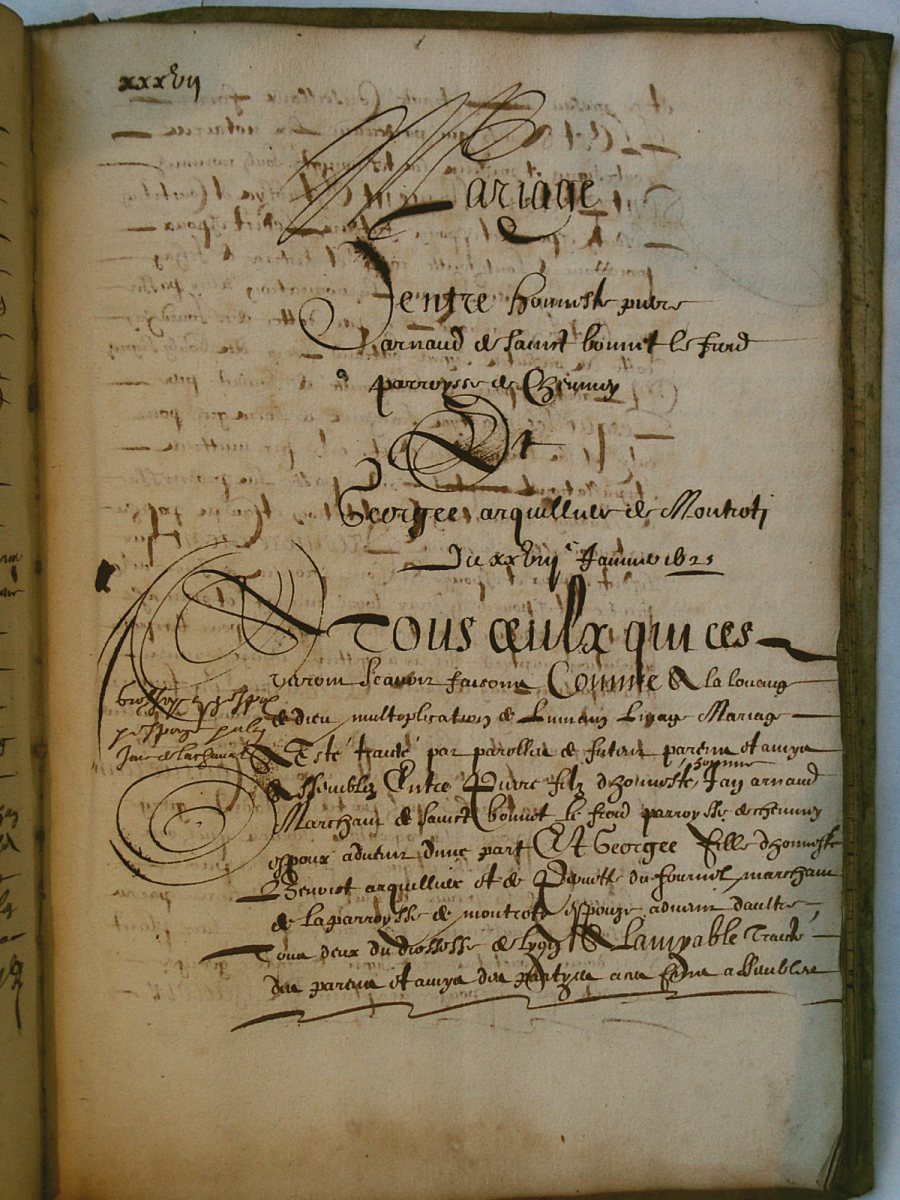 xxxvij
Mariage
entre honneste pierre
arnaud de sainct bonnet le froid
parroysse de Chevinay
Et
Georgee arquillier de Montroti
Du xxviije Janvier 1625
A Tous ceulx qui ces
verront scavoir faisons Comme A la louange
de dieu multiplication de humain lignage Mariage
A Esté traité par parolles de futeur parens et amys
Assemblez Entre Pierre filz dhonneste homme Jan arnaud
Marchant de sainct bonnet le froid parroysse de chevinay
espoux advenir dune part Et Georgee fille dhonneste
Benoict arquillier et de Pernette du fournel marchant
de la parroysse de montroti espouze advenir daultre
Tous deux du diossesse de Lyon A Lamyable Traicté
des parens et amys des partyes a ces fins assembles